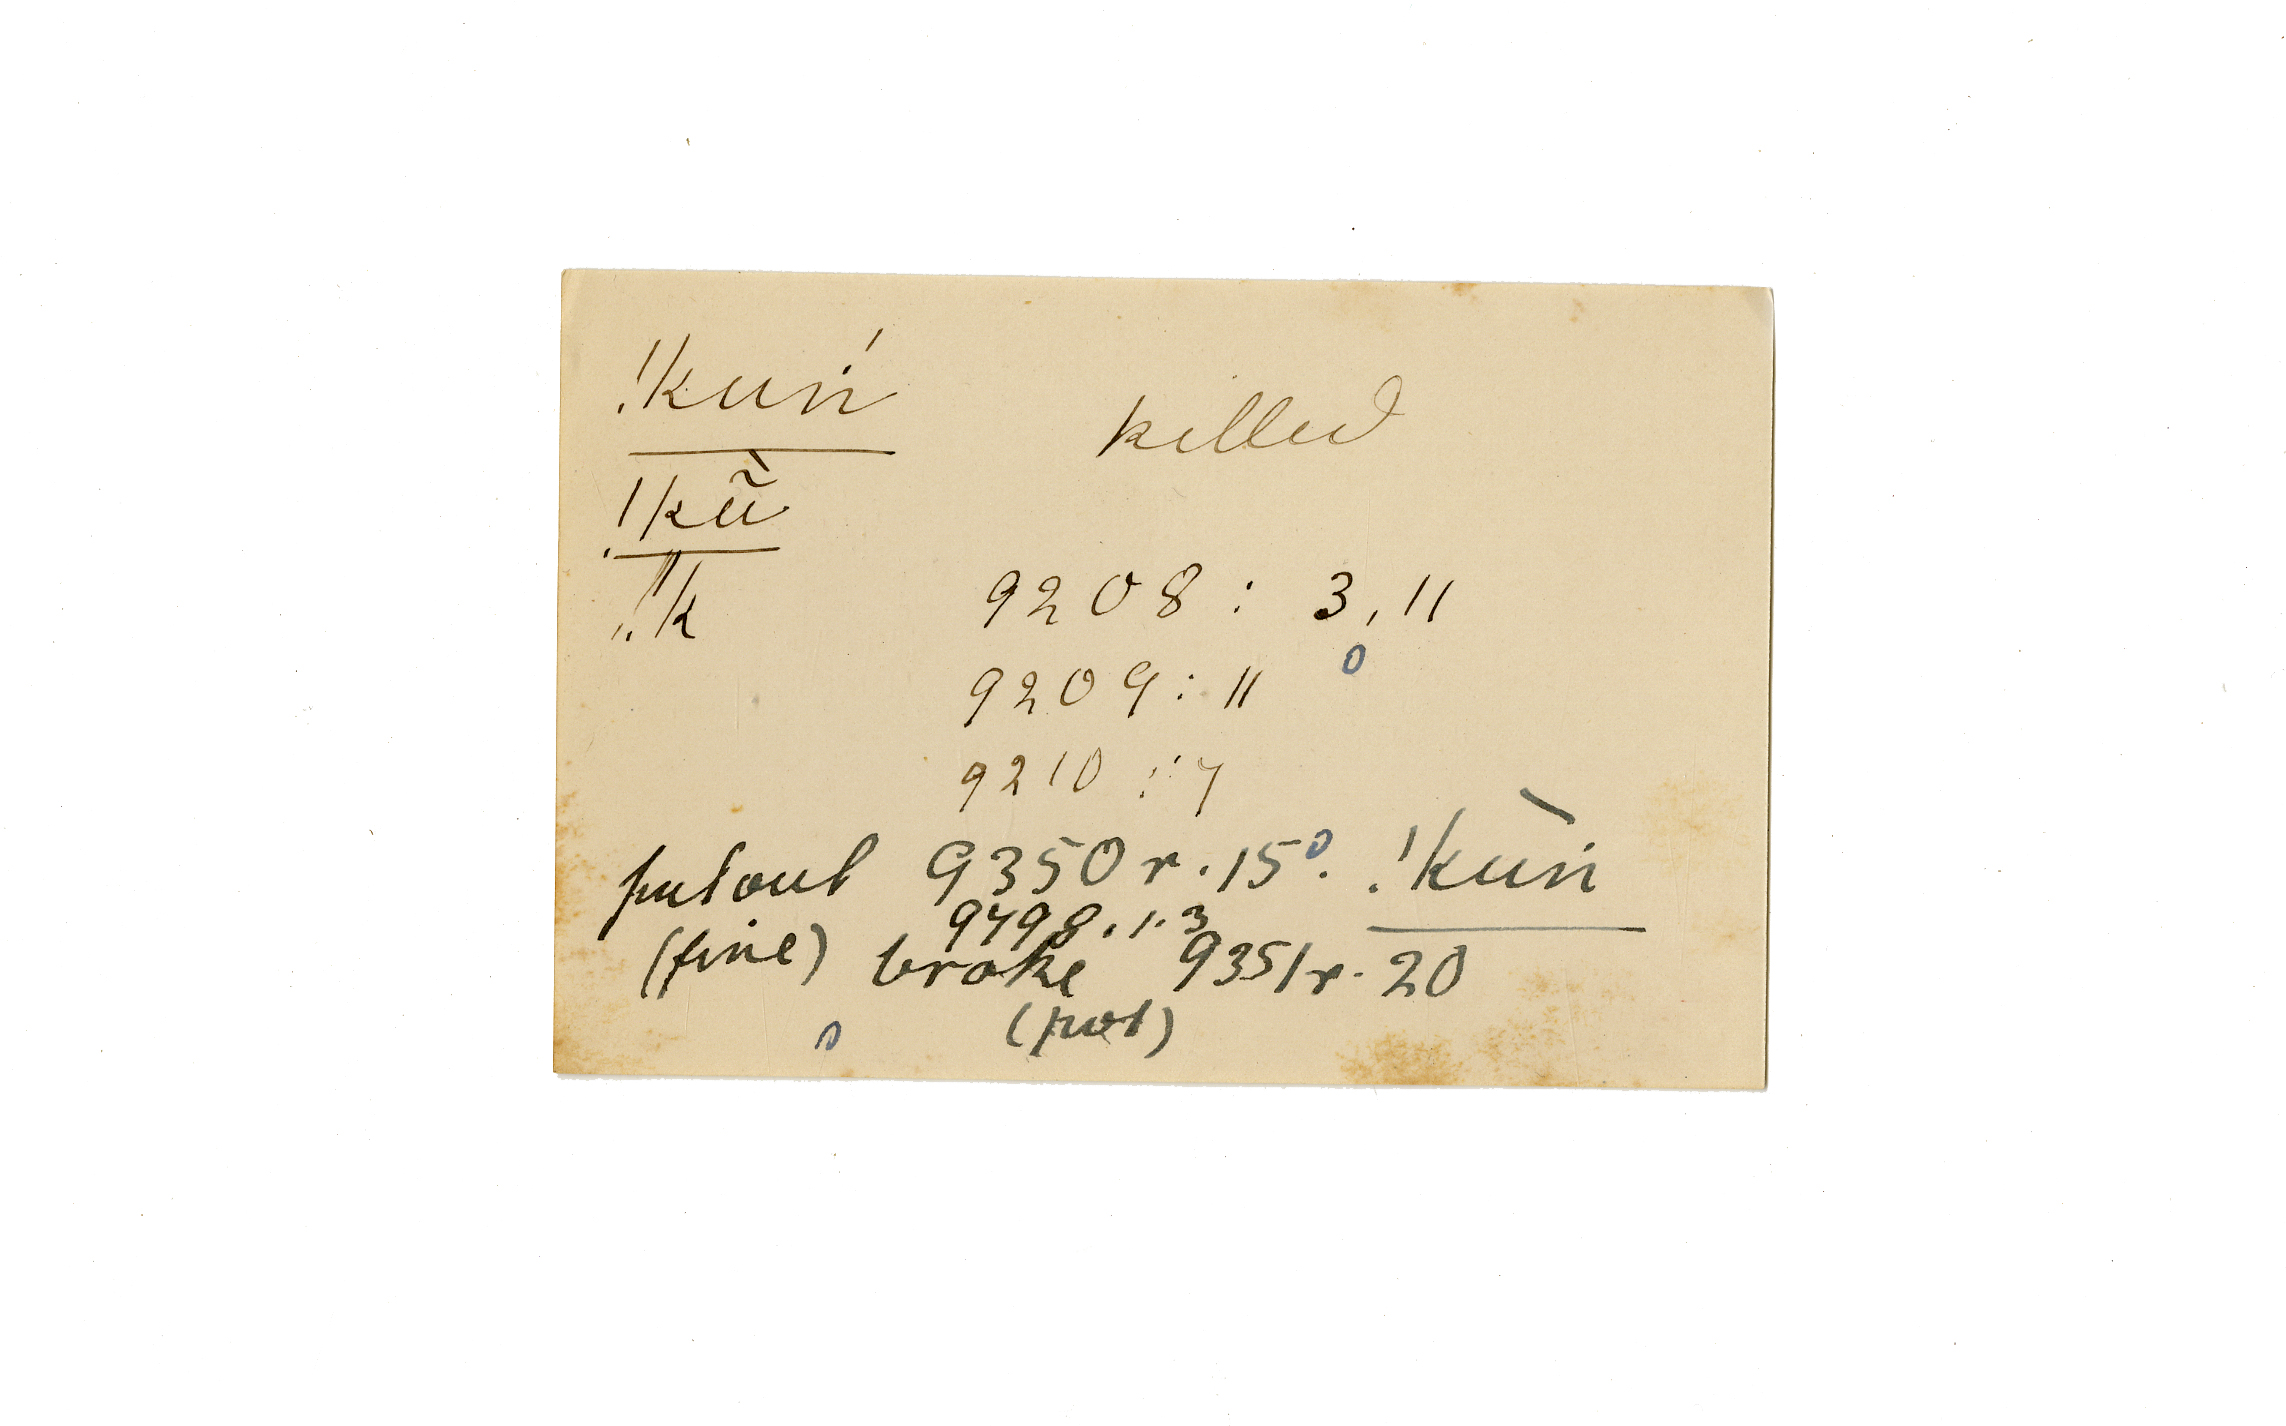 !kuṅ́
killed
!kũ̀
!k
9208 : 3, 11
9209 : 11
9210 : 7
put out 9350 r. 15. !kùṅ
9498. 1. 3
(fire) broke 9351 r. 20
(pot)